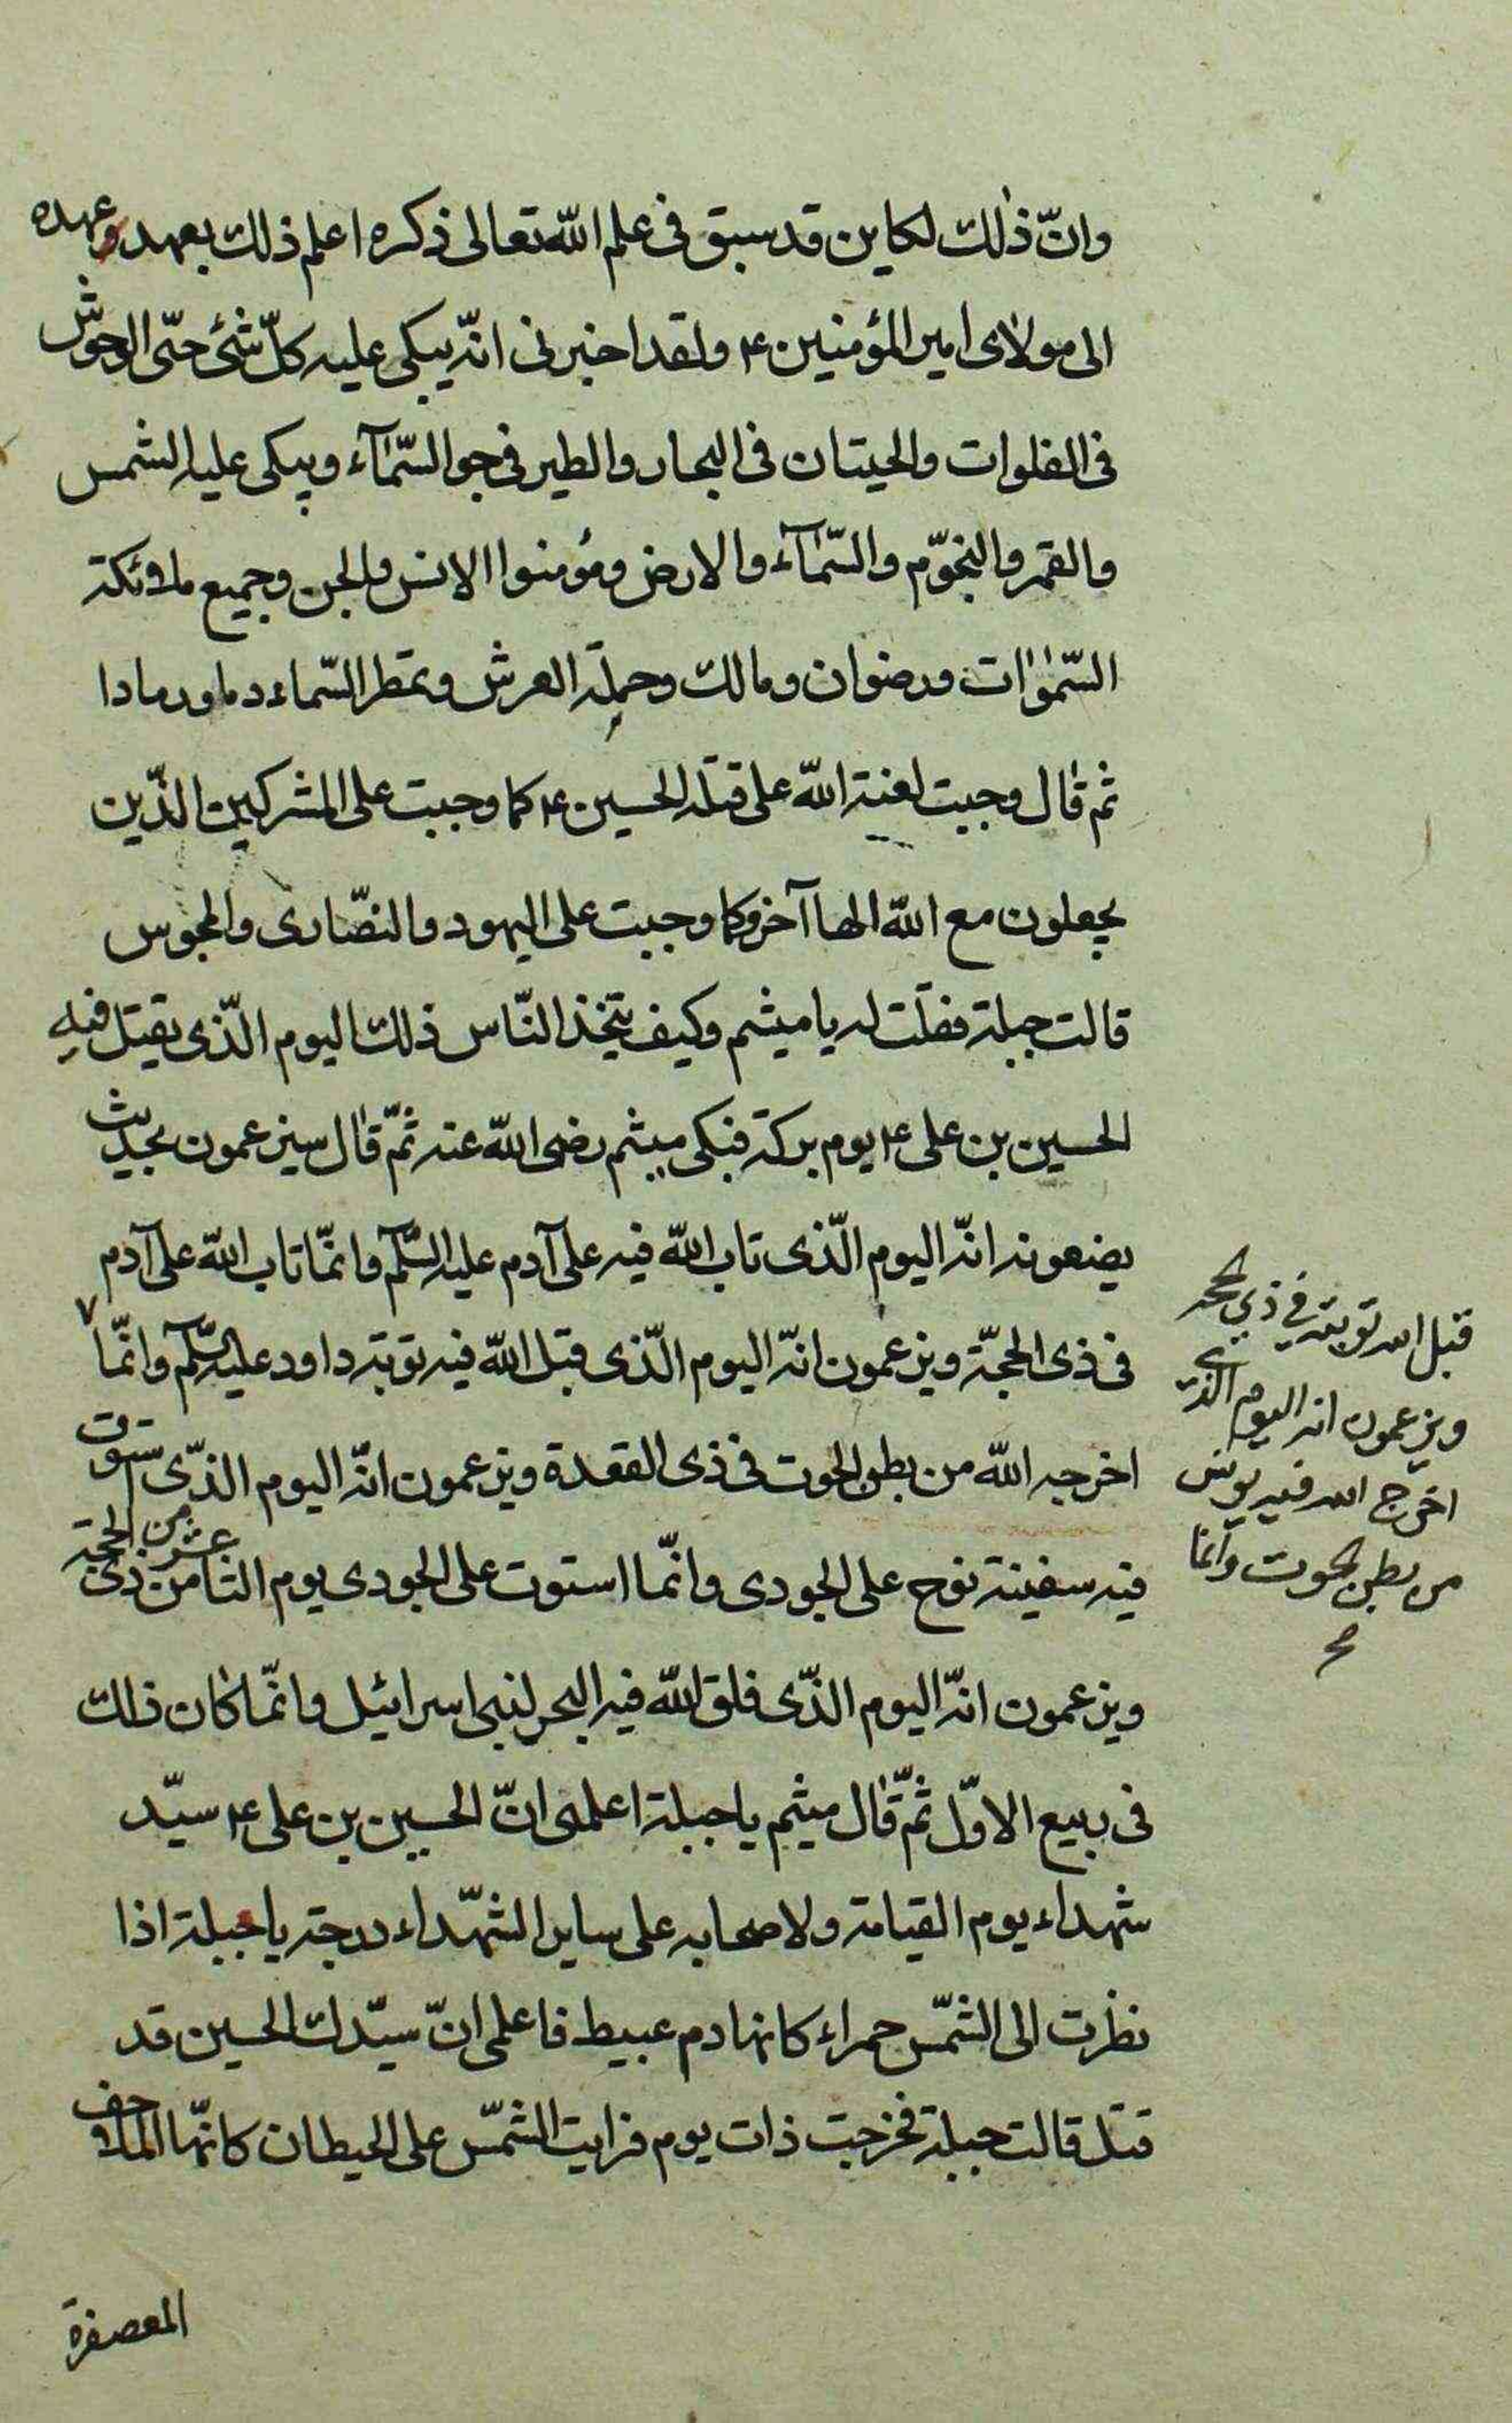 وانّ ذلك لكاين قد سبق فى علم الله تعالى ذكره اعلم ذلك بعهد وعهده
الى مولاى امير المؤمنين ع ولقد اخبرنى انّه يبكى عليه كلّ شئ حتّى الوحوش
فى الفلوات والحيتان فى البحار والطير فى جو السّمآء ويبكى عليه الشمس
والقمر والنجوّم والسّمآء والارض ومؤمنوا الانس والجن وجميع ملائكة
السّموات ورضوان ومالك وحملة العرش وتمطر السّماء دما ورمادا
ثم قال وجبت لعنة الله على قتلة الحسين ع كما وجبت على المشركين الذّين
يجعلون مع الله الها آخر وكما وجبت على اليهود والنصّارى والمجوس
قالت جبلة فقلت له يا ميثم وكيف يتّخذ النّاس ذلك اليوم الّذى يقتل فيه
الحسين بن على ع يوم بركة فبكى ميثم رضى الله عنه ثمّ قال سيزعمون بحديث
يضعونه انّه اليوم الّذى تاب الله فيه على آدم عليه السّلم وانمّا تاب الله على آدم
فى ذى الحجّة ويزعمون انّه اليوم الّذى قبل الله فيه توبة داود عليه السّلم وانمّا ٧
اخرجه الله من بطن الحوت فى ذى القعدة ويزعمون انّه اليوم الذّى استوت
فيه سفينة نوح على الجودى وانّما استوت على الجودى يوم الثامن عشر من ذى الحجة
ويزعمون انّه اليوم الذّى فلق الله فيه البحر لبنى اسرائيل وانمّا كان ذلك
فى ربيع الاوّل ثمّ قال ميثم يا جبلة اعلمى انّ الحسين بن على ع سيّد
شهداء يوم القيامة ولاصحابه على ساير الشهّداء درجة يا جبلة اذا
نظرت الى الشمّس حمراء كانها دم عبيط فاعلمى انّ سيّدك الحسين قد
قتل قالت جبلة فخرجت ذات يوم فرايت الشمّس على الحيطان كانهّا الملاحف
المعصفرة
قبل الله توبته في ذي الحجة
ويزعمون انه اليوم الذي
اخرج الله فيه يونس
من بطن الحوت وانما